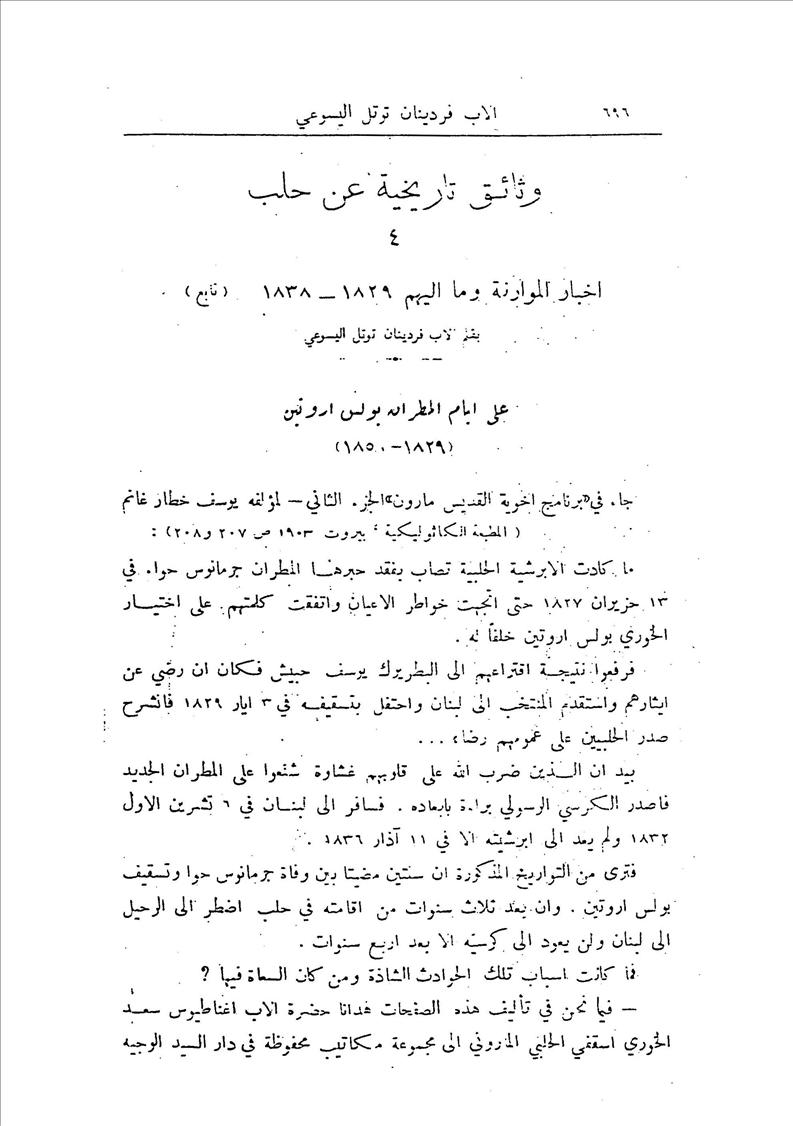 ٦٩٦ الاب فردينان توتل اليسوعي
وثائق تاريخية عن حلب
٤
اخبار الموارنة وما اليهم ١٨٢٩ – ١٨٣٨ (تابع)
بقلم الاب فردينان توتل اليسوعي
على ايام المطران بولس اروتين
(١٨٢٩-١٨٥٠)
جاء في «برنامج اخوية القديس مارون» الجزء الثاني – لمؤلفه يوسف خطار غانم
(المطبعة الكاثوليكية، بيروت ١٩٠٣ ص ٢٠٧ و٢٠٨):
ما كادت الابرشية الحلبية تصاب بفقد حبرهـا المطران جرمانوس حواء في
١٣ حزيران ١٨٢٧ حتى اتجهت خواطر الاعيان واتفقت كلمتهم على اختيـار
الخوري بولس اروتين خلفاً له .
فرفعوا نتيجـة اقتراعهم الى البطريرك يوسف حبيش فكان ان رضي عن
ايثارهم واستقدم المنتخب الى لبنان واحتفل بتسقيفه في ٣ ايار ١٨٢٩ فانشرح
صدر الحلبيين على عمومهم رضاء ...
بيد ان الـذين ضرب الله على قلوبهم غشاوة شنّعوا على المطران الجديد
فاصدر الكرسي الرسولي براءة بابعاده . فسافر الى لبنـان في ٦ تشرين الاول
١٨٣٢ ولم يعد الى ابرشيته الا في ١١ آذار ١٨٣٦ .
فترى من التواريخ المذكورة ان سنتين مضيتا بين وفاة جرمانوس حوا وتسقيف
بولس اروتين . وان بعد ثلاث سنوات من اقامته في حلب اضطر الى الرحيل
الى لبنان ولن يعود الى كرسيّه الا بعد اربع سنوات .
فما كانت اسباب تلك الحوادث الشاذة ومن كان السعاة فيها ?
– فيما نحن في تأليف هذه الصفحات هدانا حضرة الاب اغناطيوس سعـد
الخوري اسقفي الحلبي الماروني الى مجموعة مكاتيب محفوظة في دار السيد الوجيه